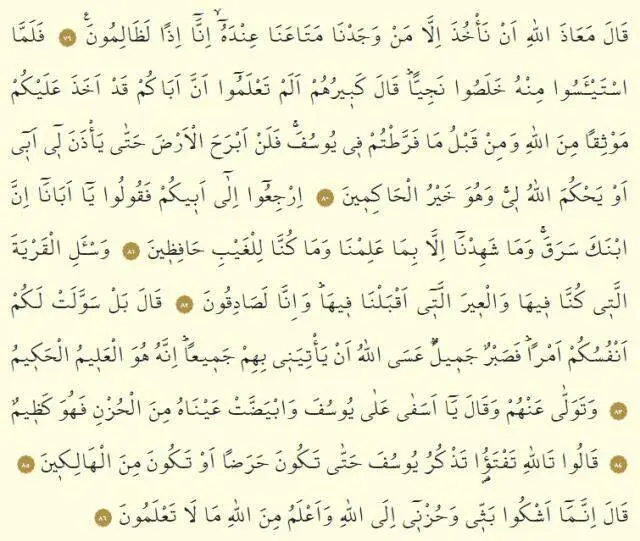 قَالَ مَعَاذَ اللّٰهِ اَنْ نَأْخُذَ اِلَّا مَنْ وَجَدْنَا مَتَاعَنَا عِنْدَهُٓۙ اِنَّٓا اِذًا لَظَالِمُونَ۟ ﴿٧٩﴾ فَلَمَّا
اسْتَيْـَٔسُوا مِنْهُ خَلَصُوا نَجِيًّاۜ قَالَ كَب۪يرُهُمْ اَلَمْ تَعْلَمُٓوا اَنَّ اَبَاكُمْ قَدْ اَخَذَ عَلَيْكُمْ
مَوْثِقًا مِنَ اللّٰهِ وَمِنْ قَبْلُ مَا فَرَّطْتُمْ ف۪ي يُوسُفَۚ فَلَنْ اَبْرَحَ الْاَرْضَ حَتّٰى يَأْذَنَ ل۪ٓي اَب۪ٓي
اَوْ يَحْكُمَ اللّٰهُ ل۪يۚ وَهُوَ خَيْرُ الْحَاكِم۪ينَ ﴿٨٠﴾ اِرْجِعُٓوا اِلٰٓى اَب۪يكُمْ فَقُولُوا يَٓا اَبَانَٓا اِنَّ
ابْنَكَ سَرَقَۚ وَمَا شَهِدْنَٓا اِلَّا بِمَا عَلِمْنَا وَمَا كُنَّا لِلْغَيْبِ حَافِظ۪ينَ ﴿٨١﴾ وَسْـَٔلِ الْقَرْيَةَ
الَّت۪ي كُنَّا ف۪يهَا وَالْع۪يرَ الَّت۪ٓي اَقْبَلْنَا ف۪يهَاۜ وَاِنَّا لَصَادِقُونَ ﴿٨٢﴾ قَالَ بَلْ سَوَّلَتْ لَكُمْ
اَنْفُسُكُمْ اَمْرًاۜ فَصَبْرٌ جَم۪يلٌۜ عَسَى اللّٰهُ اَنْ يَأْتِيَن۪ي بِهِمْ جَم۪يعًاۜ اِنَّهُ هُوَ الْعَل۪يمُ الْحَك۪يمُ
﴿٨٣﴾ وَتَوَلّٰى عَنْهُمْ وَقَالَ يَٓا اَسَفٰى عَلٰى يُوسُفَ وَابْيَضَّتْ عَيْنَاهُ مِنَ الْحُزْنِ فَهُوَ كَظ۪يمٌ
﴿٨٤﴾ قَالُوا تَاللّٰهِ تَفْتَؤُ۬ا تَذْكُرُ يُوسُفَ حَتّٰى تَكُونَ حَرَضًا اَوْ تَكُونَ مِنَ الْهَالِك۪ينَ ﴿٨٥﴾
قَالَ اِنَّمَٓا اَشْكُوا بَثّ۪ي وَحُزْن۪ٓي اِلَى اللّٰهِ وَاَعْلَمُ مِنَ اللّٰهِ مَا لَا تَعْلَمُونَ ﴿٨٦﴾